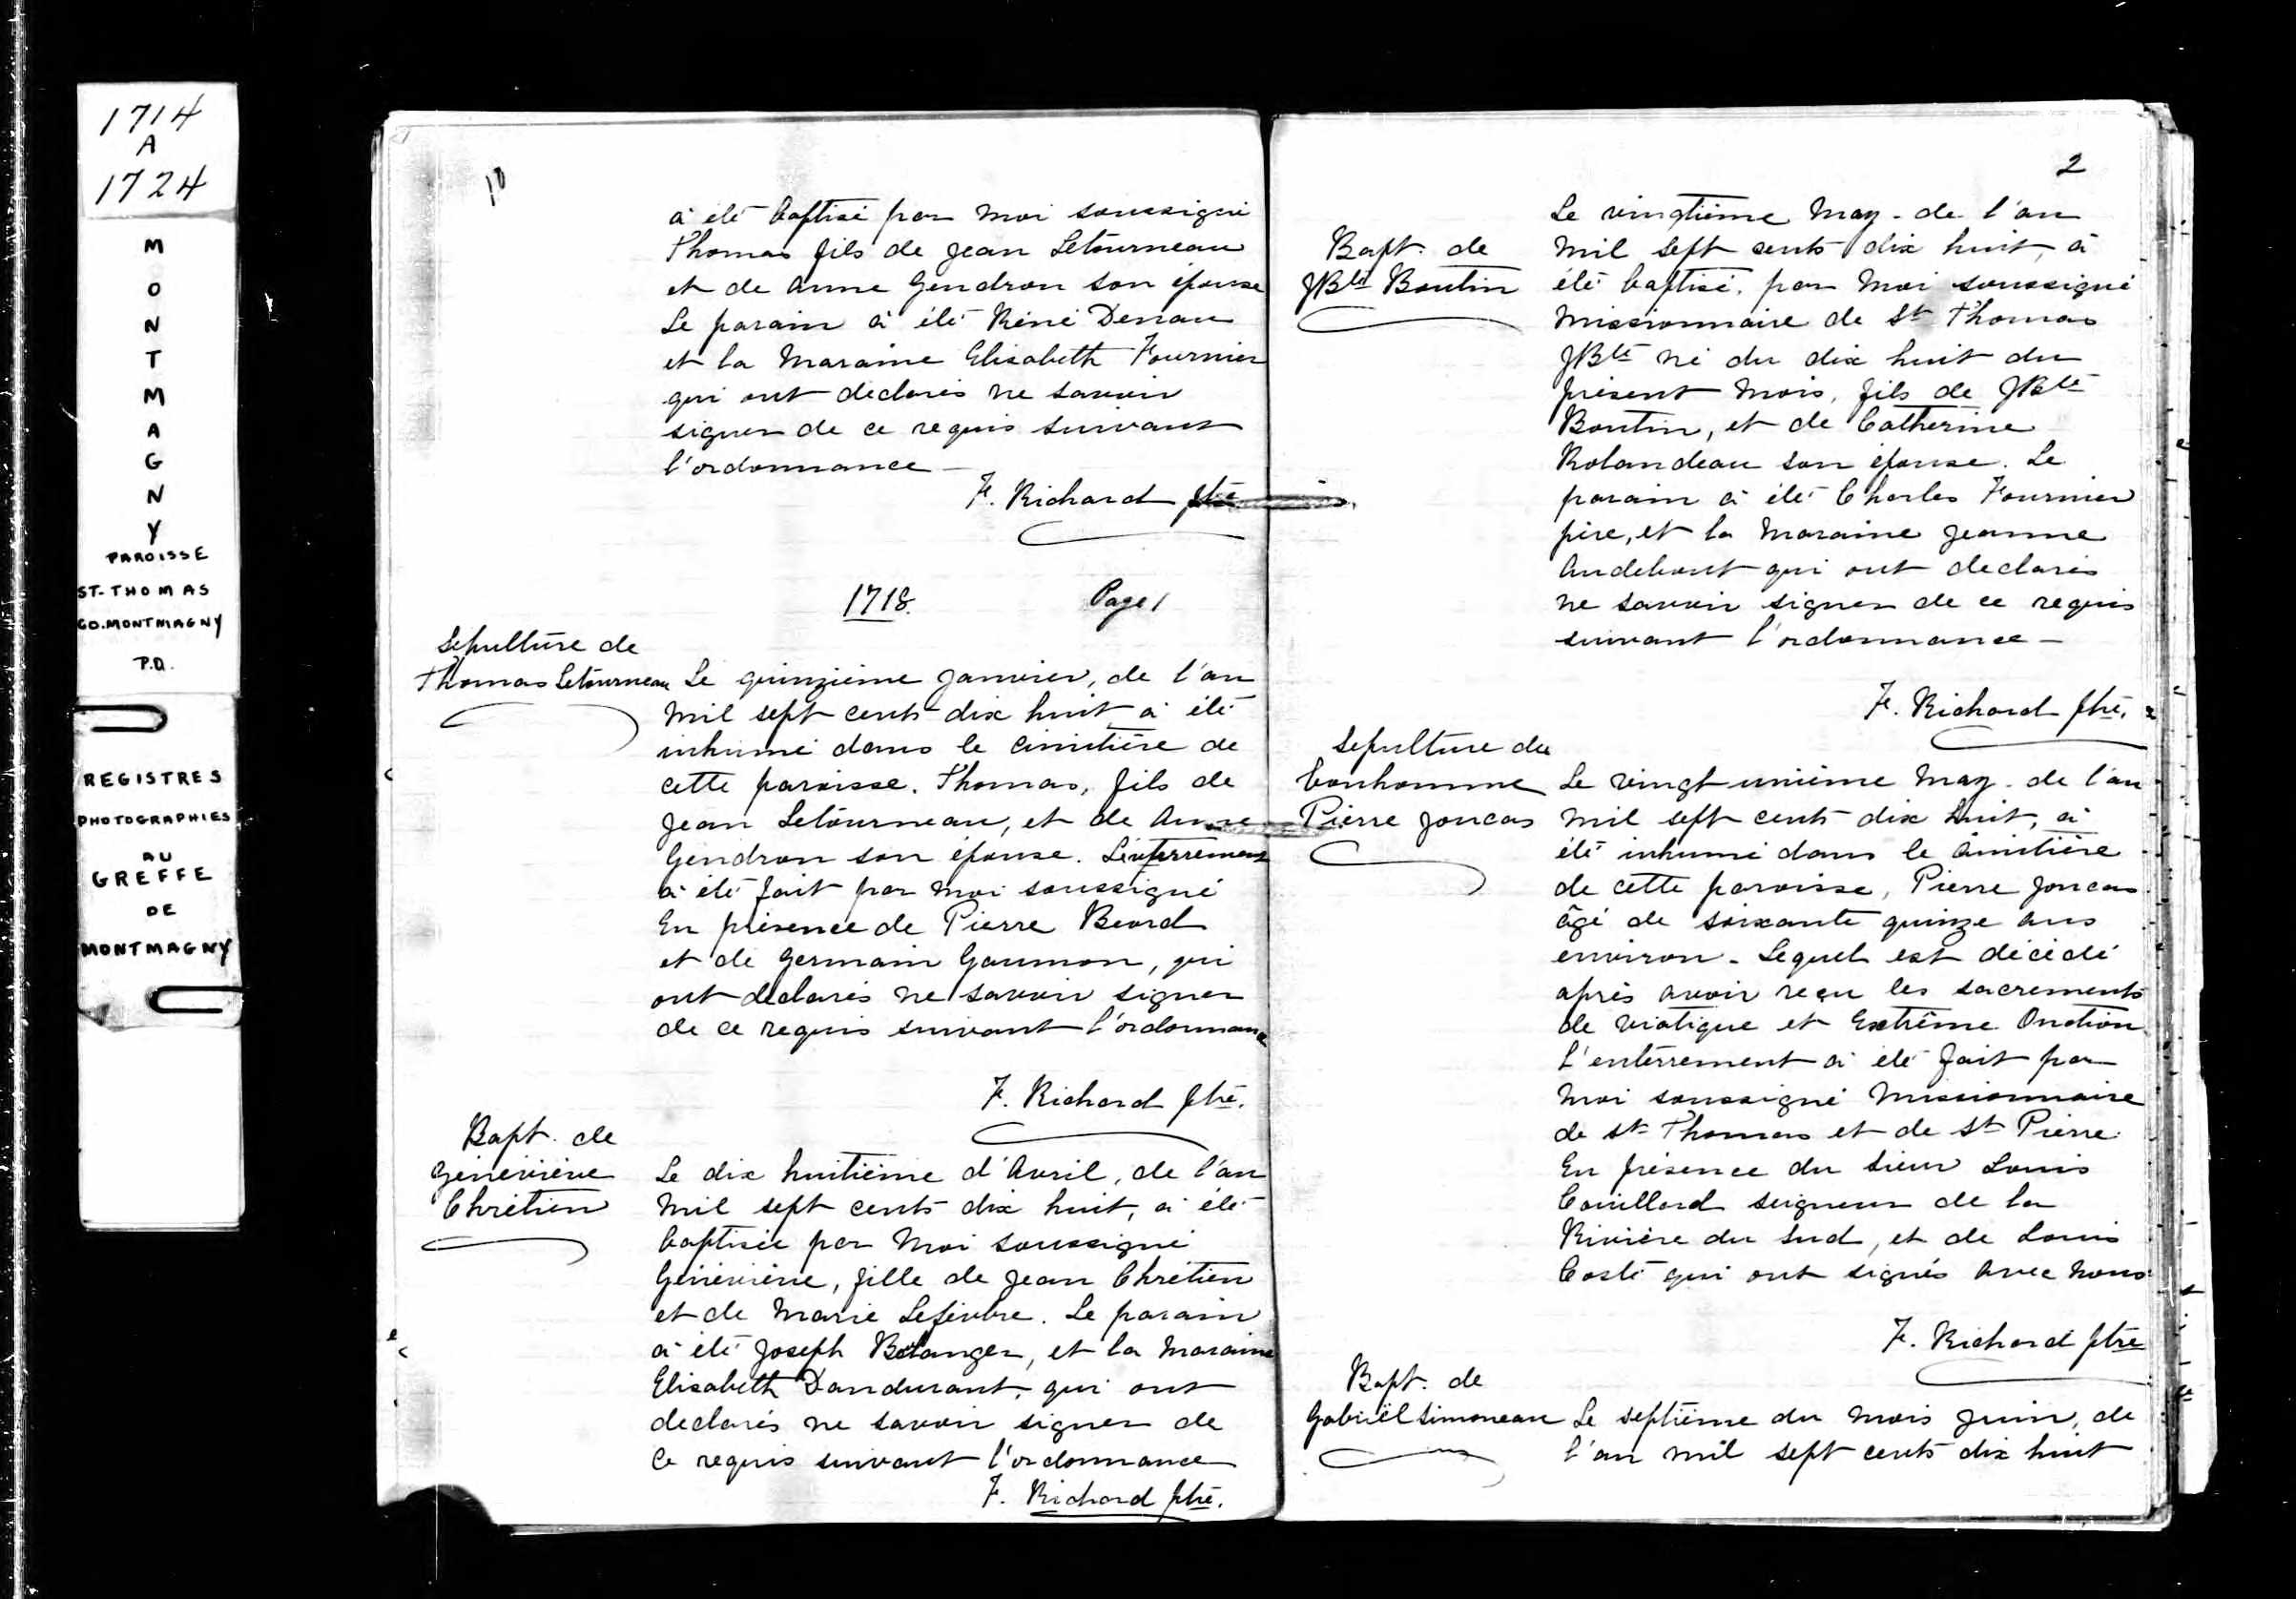 1714
A
1724
M
O
N
T
M
A
G
N
Y
PAROISSE
ST-THOMAS
CO.MONTMAGNY
P.Q.
REGISTRES
PHOTOGRAPHIES
AU
GREFFE
DE
MONTMAGNY
10
à été baptisé par moi soussigné
Thomas fils de Jean Letourneau
et de Anne Gendron son épouse
Le parain à été Réné Denau
et la Maraine Elisabeth Fournier
qui ont déclarés ne savoir
signer de ce requis suivant
l'ordonnance –
F. Richard ptre
1718. Page 1
Sépulture de
Thomas Letourneau
Le quinzième Janvier, de l'an
mil sept cents dix huit à été
inhumé dans le cimitière de
cette paroisse. Thomas, fils de
Jean Letourneau, et de Anne
Gendron son épouse. L'enterrement
à été fait par moi soussigné
En présence de Pierre
et de Germain Gaumon, qui
ont déclarés ne savoir signer
de ce requis suivant l'ordonnance
F. Richard ptre.
Bapt. de
Généviève
Chrétien
Le dix huitième d'Avril, de l'an
Mil sept cents dix huit, à été
baptisée par Moi soussigné
Généviève, fille de Jean Chrétien
et de Marie Lefevbre. Le parain
à été Joseph Belanger, et la Maraine
Elisabeth Dandurant, qui ont
déclarés ne savoir signer de
Ce requis suivant l'ordonnance
F. Richard ptre.
2
Bapt. de
JBte Boutin
Le vingtième May - de l'an
Mil sept cents dix huit, à
été baptisé, par Moi soussigné
Missionnaire de St Thomas
JBte né du dix huit du
présent Mois, fils de JBte
Boutin, et de Catherine
Rolandeau son épouse. Le
parain à été Charles Fournier
père, et la Maraine Jeanne
qui ont déclarés
ne savoir signer de ce requis
suivant l'ordonnance –
F. Richard ptre.
Sépulture du
bonhomme
Pierre Joncas
Le vingt unième May - de l'an
Mil sept cents dix huit, à
été inhumé dans le Cimitière
de cette paroisse, Pierre Joncas
âgé de soixante quinze ans
environ - Lequel est décédé
après avoir reçu les sacrements
de viatique et Extrême Onction
L'enterrement à été fait par
Moi soussigné Missionnaire
de St Thomas et de St Pierre
En présence du Sieur Louis
Couillard seigneur de la
Rivière du Sud, et de Louis
Costé qui ont signés avec Nous
F. Richard ptre
Bapt. de
Gabriël Simoneau
Le septième du Mois Juin, de
l'an mil sept cents dix huit